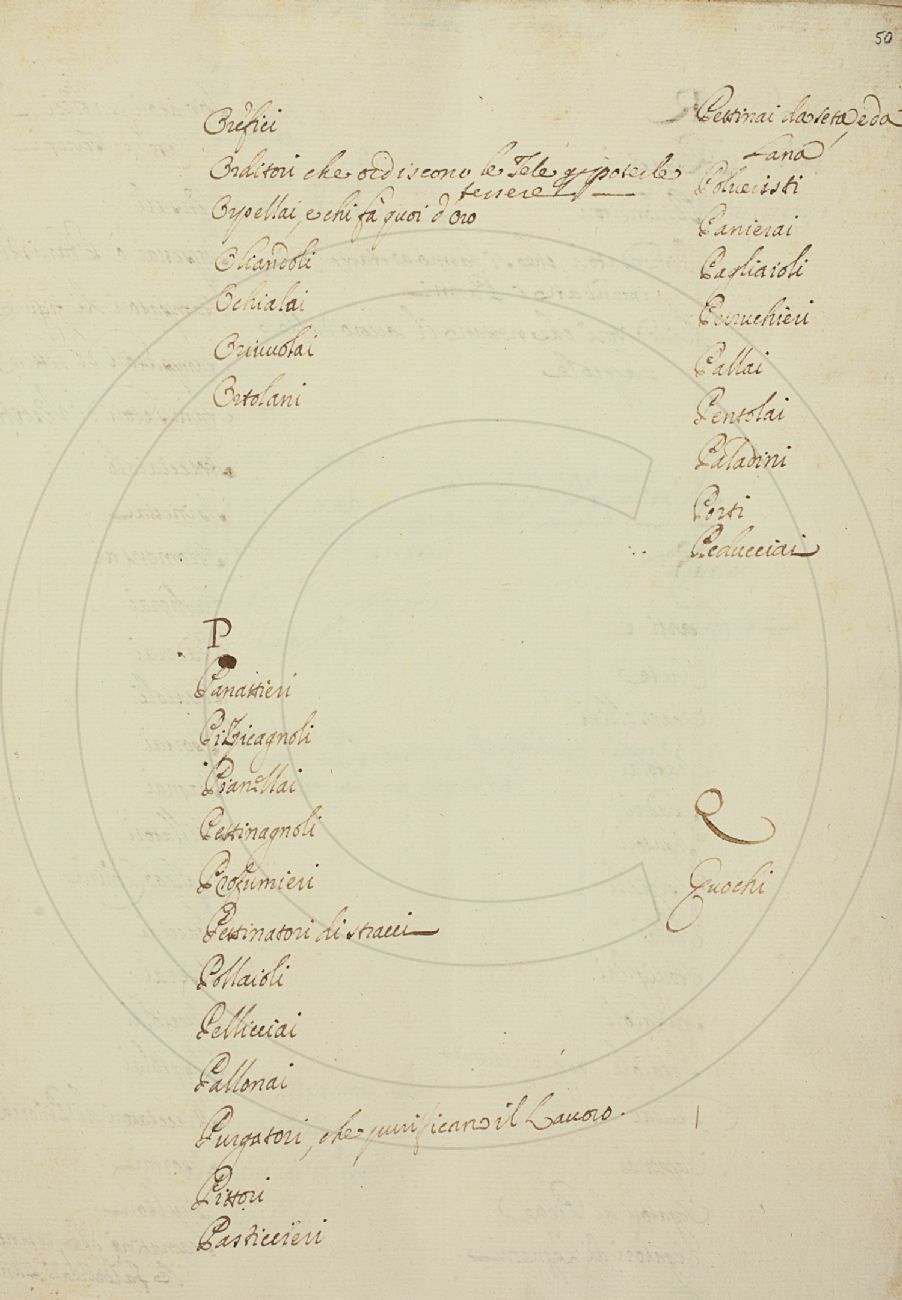 50
Orefici
Orditori che ordiscono le Tele p poterle
tessere
Orpellai, e chi fà quoi d'oro
Oliandoli
Ochialai
Oriuolai
Ortolani
P
Panattieri
Pizzicagnoli
Pianellai
Pettinagnoli
Profumieri
Pettinatori di stracci
Pollaioli
Pellicciai
Pallonai
Purgatori, che purificano il Lauoro.
Pittori
Pasticcieri
Pettinai da seta, e da
Lana
Polueristi
Panierai
Pagliaioli
Perruchieri
Pallai
Pentolai
Paladini
Porti
Peducciai
Q
Quochi